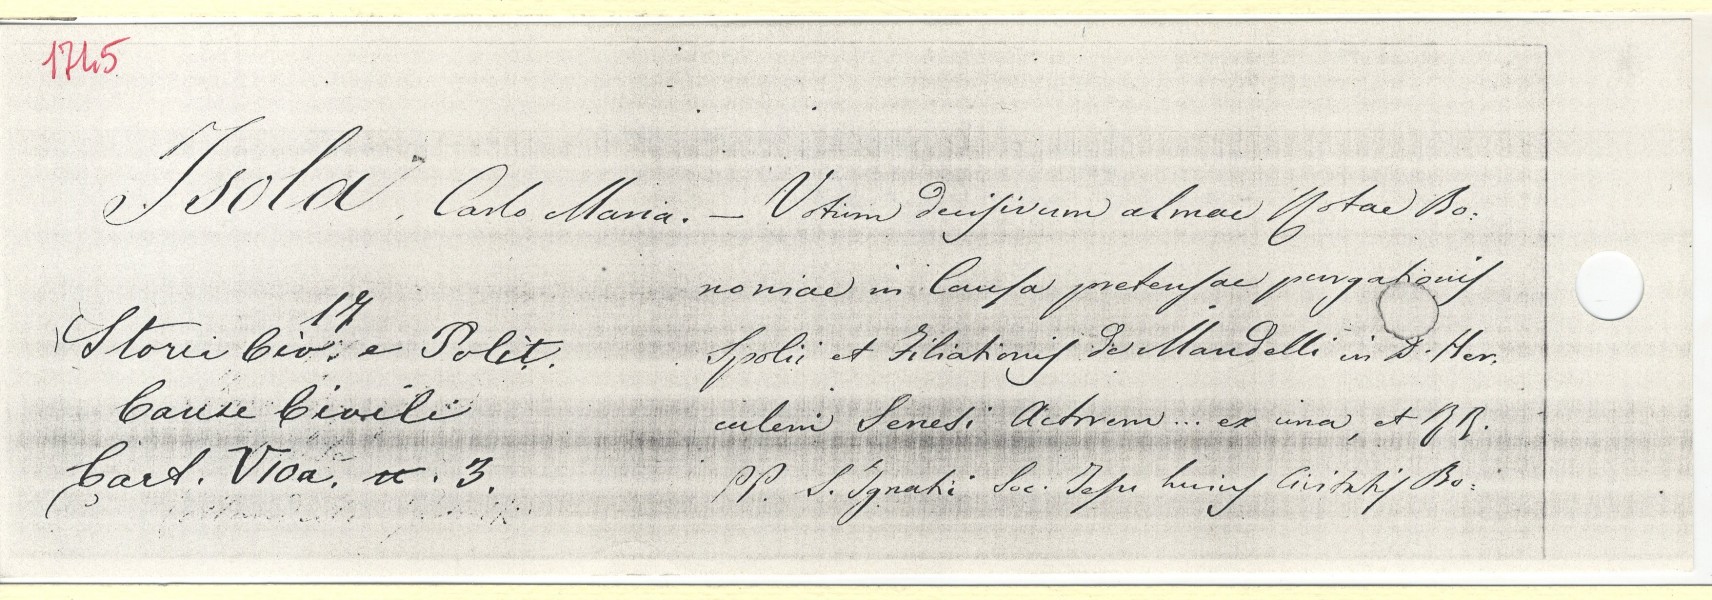 1745
Isola, Carlo Maria. — Votum decisivum almae Rotae Bo:
noniae in Causa pretensae purgationis
17
Storia Civ: e Polit.
Spolii et Filiationis de Mandelli in D. Her,
Cause Civili
culem Senesi Actorem ... ex una, et RR.
Cart. V10a. n. 3.
PP. S. Ignatii Soc. Jesu huius Civitatis Bo: